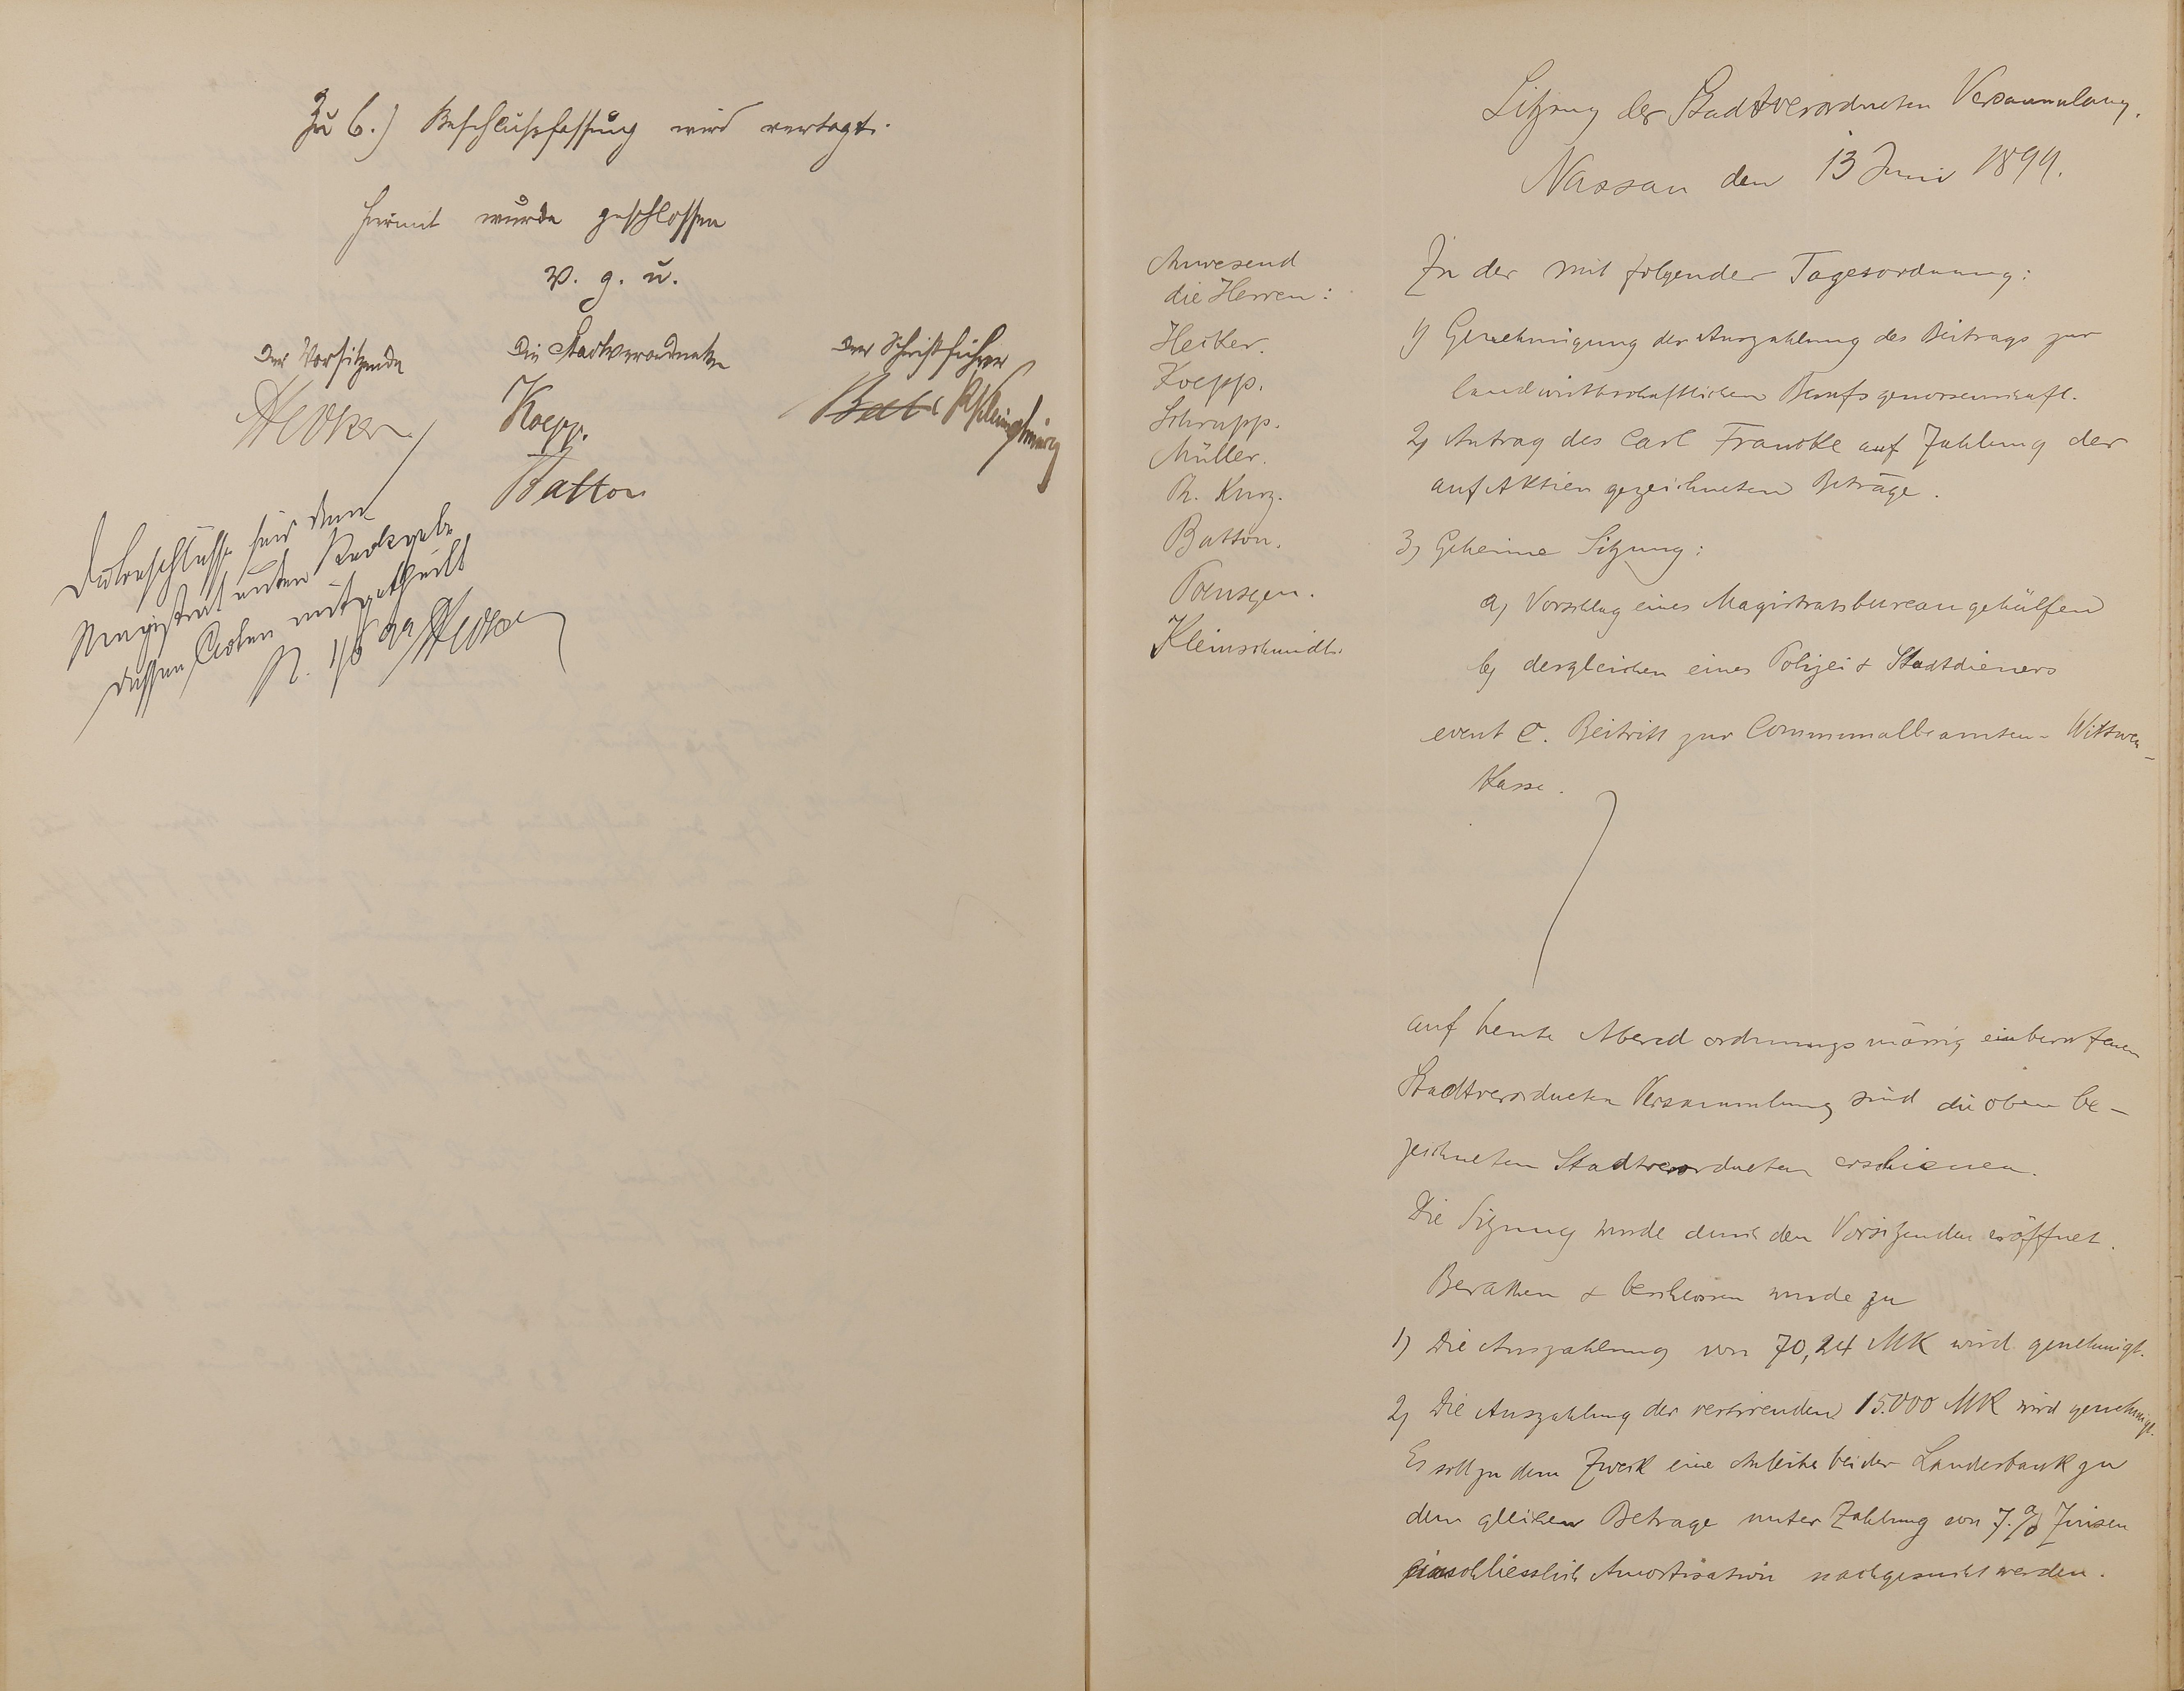 Zu 6.) Beschlußfassung wird vertagt.
Hiermit wurde geschlossen
v. g. u.
Der Vorsitzende
Die Stadtverordneten
Der Schriftführer
Hecker
Koepp.
Batton
Kleinschmidt
Die Beschlüsse sind dem
Magistrat unter Rückgabe
dessen Acten mitgetheilt
N. 1/6 99 Hecker
Sitzung der Stadtverordneten Versammlung.
Nassau den 13 Juni 1899.
Anwesend
die Herren:
Hecker.
Koepp.
Schrupp.
Müller.
Ph. Kurz.
Batton.
Poensgen.
Kleinschmidt.
In der mit folgender Tagesordnung:
1) Genehmigung der Auszahlung des Beitrags zur
landwirthschaftlichen Berufsgenossenschaft.
2) Antrag des Carl Francke auf Zahlung der
auf Aktien gezeichneten Beträge.
3) Geheime Sitzung:
a) Vorschlag eines Magistratsbureaugehülfen
b) desgleichen eines Polizei & Stadtdieners
event c. Beitritt zur Communalbeamten- Wittwen-
Kasse.
auf heute Abend ordnungsmässig einberufenen
Stadtverordneten Versammlung sind die oben be-
zeichneten Stadtverordneten erschienen.
Die Sitzung wurde durch den Vorsitzenden eröffnet.
Berathen & beschlossen wurde zu
1) Die Auszahlung von 70,24 MK wird genehmigt.
2) Die Auszahlung der restirenden 15.000 MK wird genehmigt.
Es soll zu dem Zweck eine Anleihe bei der Landesbank zu
dem gleichen Betrage unter Zahlung von 7.% Zinsen
einschliesslich Amortisation nachgesucht werden.